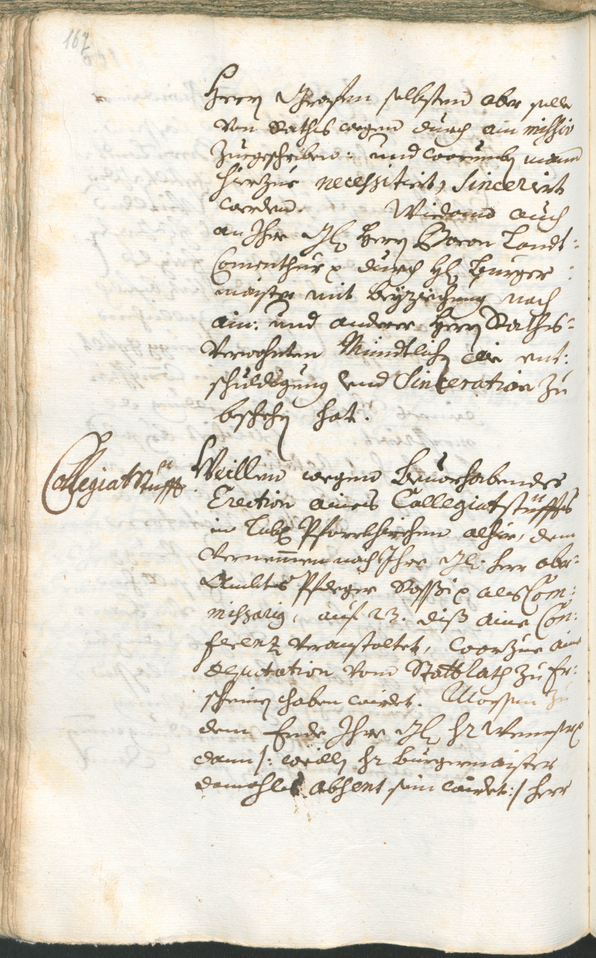 167
Herrn Grafen selbsten aber solle
von Raths wegen durch ain missiv
zuegeschriben: und warumb mann
hierzue necessitirt, sincerirt
werden. Wie dann auch
an Ihro Gl. Herrn Baron Landt=
Comenthur p durch H. Burger=
maister mit beyziehung noch
ain: und anderer Herrn Raths=
verwohnten Mündtlich die ent:
schuldigung und Sinceration zu
beschehen hat.
Collegiat Stüfft
Weillen wegen bevorhabender
Erection aines Collegiatstüffts
in Pfarrkhirchen alhier, dem
vernemmen nach Ihro Gl. Herr ober=
Ambts Pfleger p als Com:
missari, auf 23. diß aine Con:
ferenz veranstaltet, worzue ain
deputation vom Stattrath zu er:
scheinen haben wirdet. Massen zu
dem Ende Ihro Gl. Hr
dann /: weillen Hr Burgermaister
damahls absent sein wirdet :/ Herr